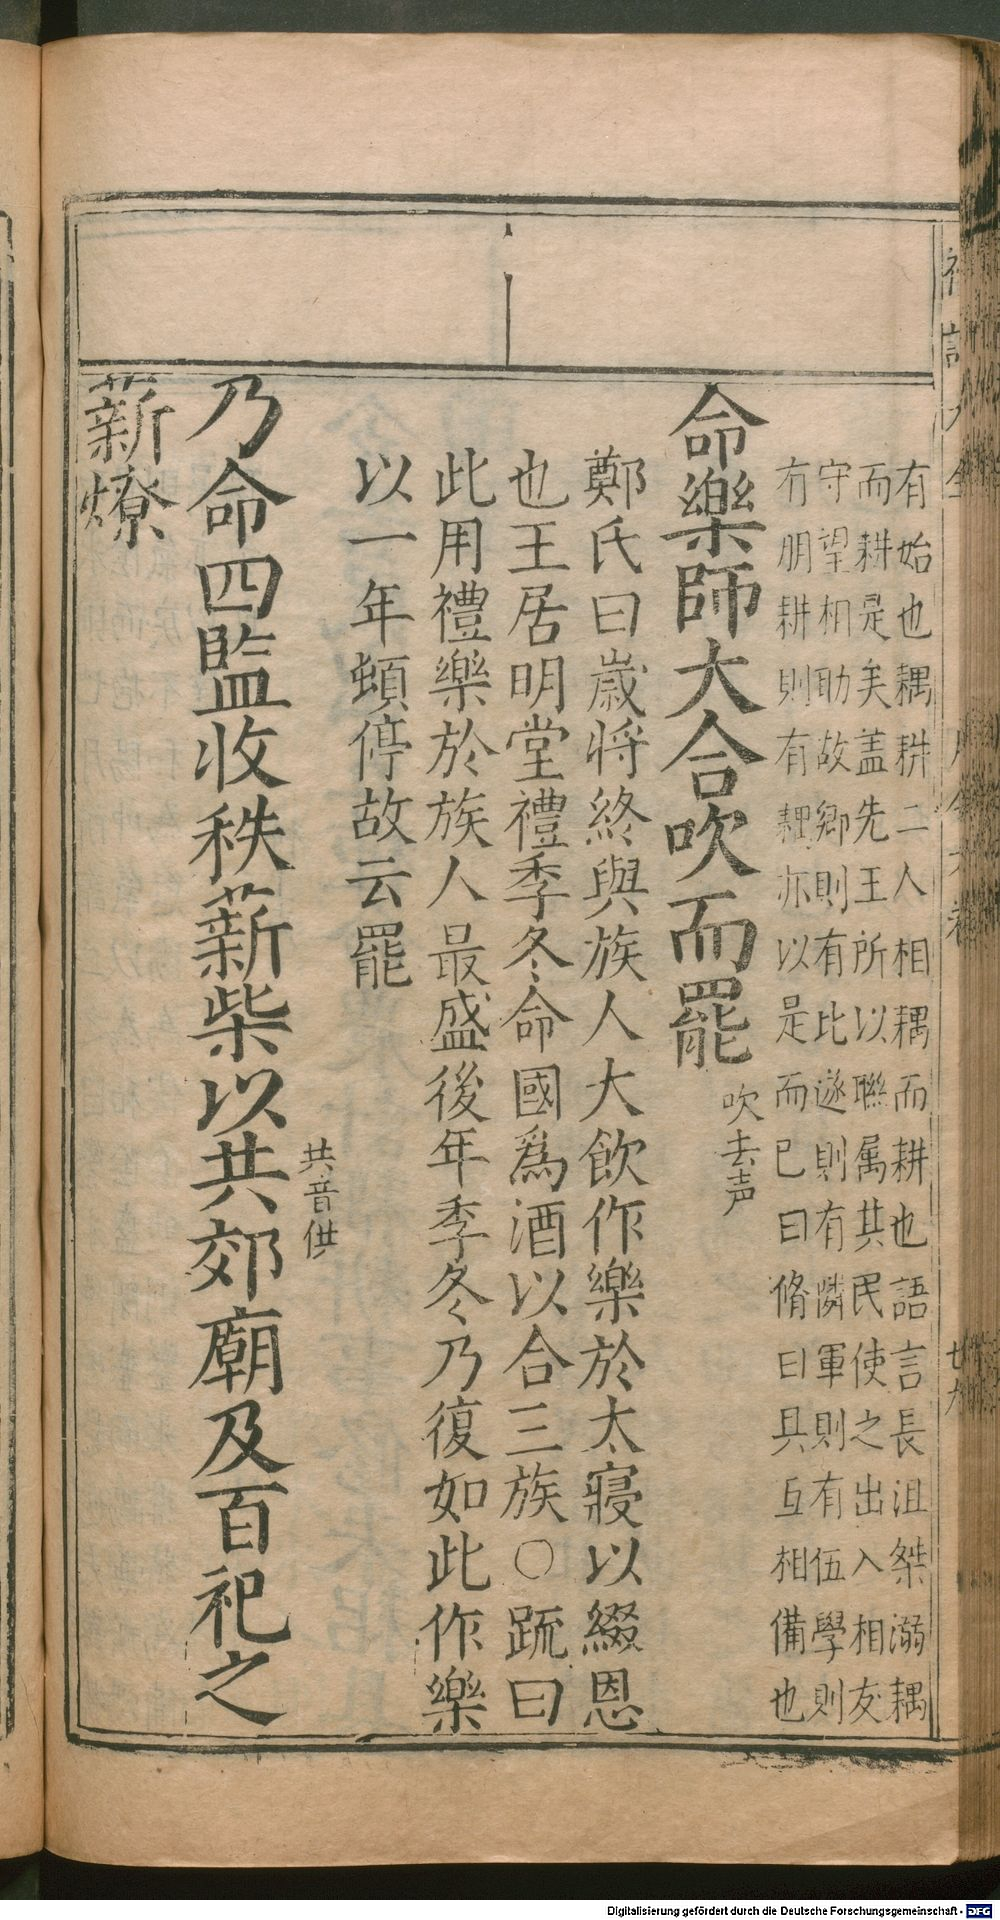 有始也耦耕二人相耦而耕也語言長沮桀溺耦
而耕是矣盖先王所以聯属其民使之出入相友
守望相助故鄉則有比遂則有隣軍則有伍學則
有朋耕則有耦亦以是而已曰脩曰具互相備也
命樂師大合吹而罷
吹去声
鄭氏曰歲將終與族人大飲作樂於太寢以綴恩
也王居明堂禮季冬命國爲酒以合三族○疏曰
此用禮樂於族人最盛後年季冬乃復如此作樂
以一年頓停故云罷
共音供
乃命四監收秩薪柴以共郊廟及百祀之
薪燎
Digitalisierung gefördert durch die Deutsche Forschungsgemeinschaft - DFG